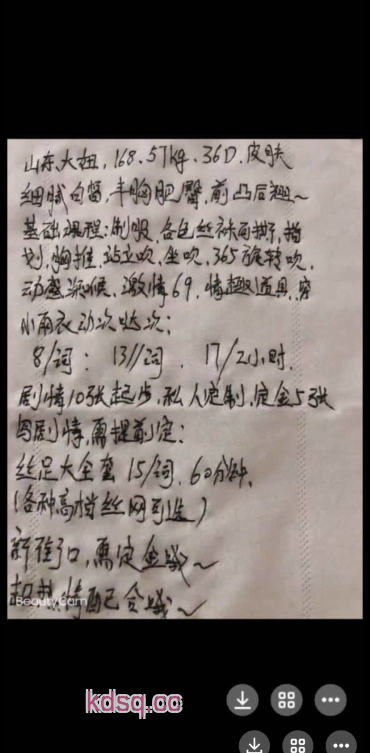 山东大妞, 168.57kg. 36D. 皮肤
细腻白皙, 丰胸肥臀, 前凸后翘~
基础课程: 制服, 各色丝袜可撕, 指
划, 胸推, 站立吹, 坐吹, 365旋转吹,
动感深喉, 激情69, 情趣道具, 穿
小雨衣动次哒次:
8/词: 13//词. 17/2小时.
剧情10张起步, 私人定制, 定金5张
剧情, 需提前定:
丝足大全套 15/词, 60分钟.
(各种高档丝网可选)
新街口, 需定金哦~
合哦~
BeautyCam
kdsq.cc